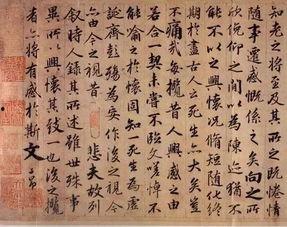 知老之將至及其所之既惓情
隨事遷感慨係之矣向之所
欣俛仰之間以為陳迹猶不
能不以之興懷況脩短隨化終
期於盡古人云死生亦大矣豈
不痛哉每攬昔人興感之由
若合一契未嘗不臨文嗟悼不
能喻之於懷固知一死生為虛
誕齊彭殤為妄作後之視今
亦由今之視昔 悲夫故列
敘時人錄其所述雖世殊事
異所以興懷其致一也後之攬
者亦將有感於斯文 子昂